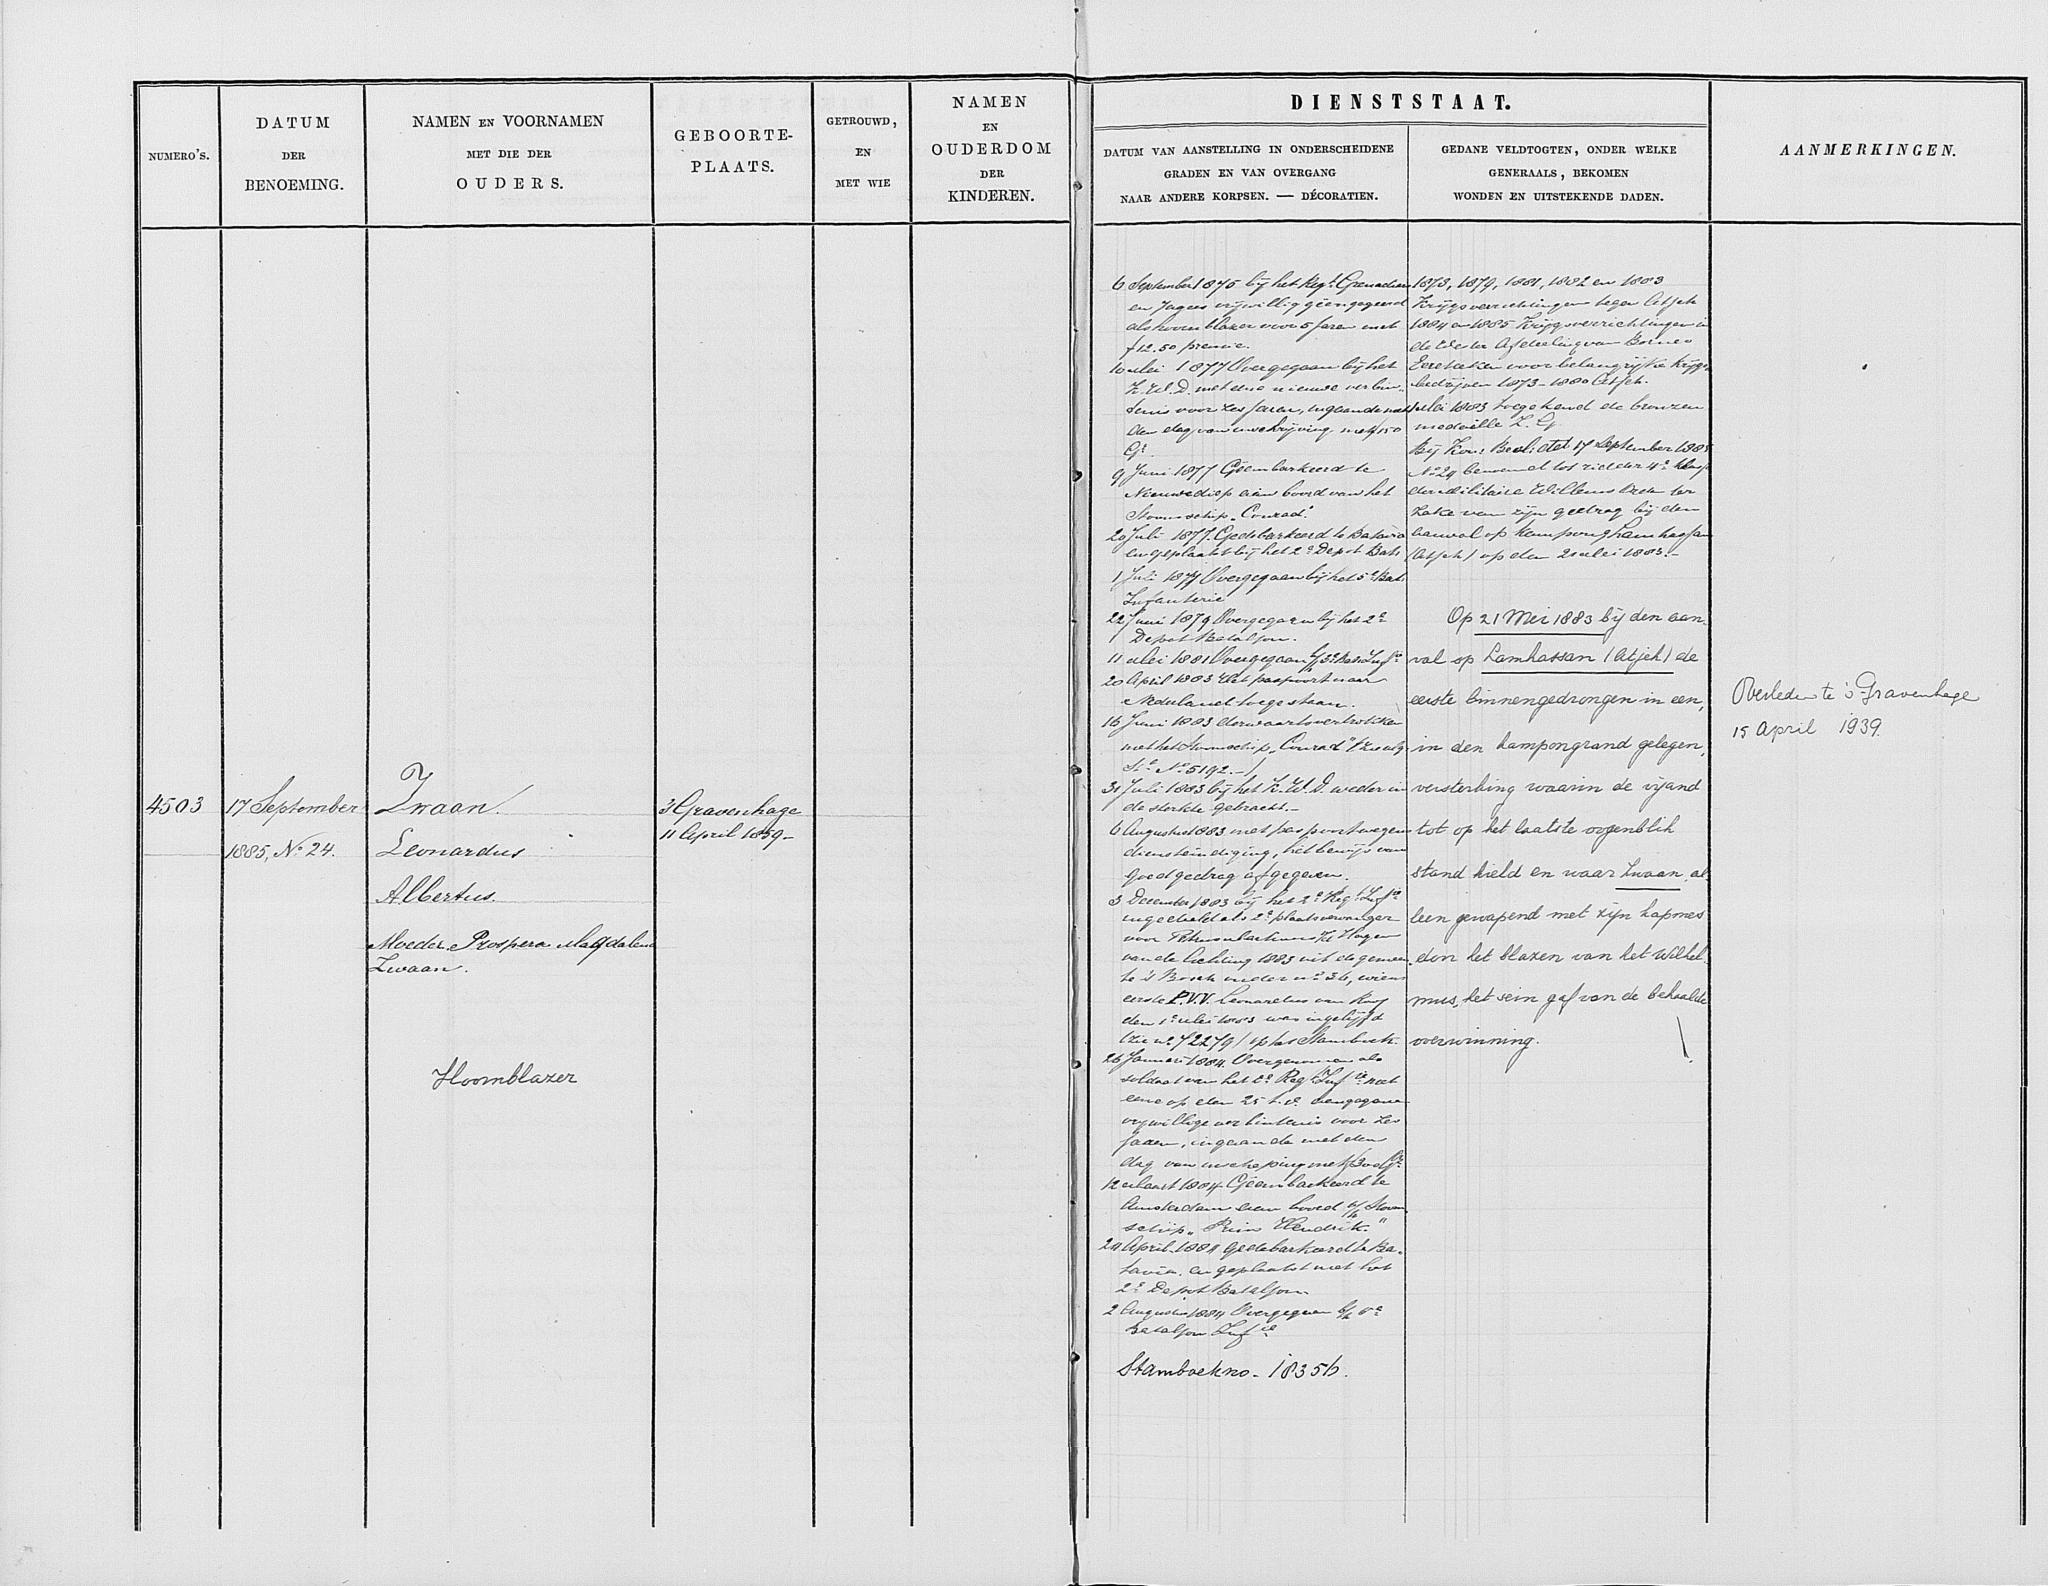 NUMERO'S.
DATUM
DER
BENOEMING.
NAMEN EN VOORNAMEN
MET DIE DER
OUDERS.
GEBOORTE-
PLAATS.
GETROUWD,
EN
MET WIE
NAMEN
EN
OUDERDOM
DER
KINDEREN.
4503
17 September
1885, No 24.
Zwaan.
Leonardus
Albertus.
Moeder. Prospera Magdalena
Zwaan.
Hoornblazer
's Gravenhage
11 April 1859-
DIENSTSTAAT.
DATUM VAN AANSTELLING IN ONDERSCHEIDENE
GRADEN EN VAN OVERGANG
NAAR ANDERE KORPSEN. — DÉCORATIEN.
6 September 1875 bij het Regt Grenadiers
en Jagers vrijwillig geëngageerd
als hoornblazer voor 5 jaren met
f12.50 premie.
10 Mei 1877 Overgegaan bij het
K.W.D. met eene nieuwe verbin-
tenis voor zes jaren, ingaande met
den dag van inscheping met f150
Gt
9 Juni 1877 Geëmbarkeerd te
Nieuwediep aan boord van het
Stoomschip "Conrad".
20 Juli 1877. Gedebarkeerd te Batavia
en geplaatst bij het 2e Depot Bats
1 Juli 1877 Overgegaan bij het 5e Bat.
Infanterie
22 Juni 1879 Overgegaan bij het 2e
Depot Bataljon.
11 Mei 1881 Overgegaan b/h 3e Bats Infie
20 April 1883 Het paspoort naar
Nederland toegestaan.
16 Juni 1883 derwaarts vertrokken
met het Stoomschip "Conrad" (
No 5192.-)
31 Juli 1883 bij het K.W.D. weder in
de sterkte gebracht.-
6 Augustus 1883 met paspoort wegens
diensteindiging, het bewijs van
goed gedrag afgegeven.
3 December 1883 bij het 2e Regt Infie
ingedeeld als 2e plaatsvervanger
voor
van de lichting 1883 uit de gemeen-
te 's Bosch onder no 36, wiens
eerste P.V.V. Leonardus van
den 1e Mei 1883 was ingelijfd
(zie no 72279) op het Stamboek.
26 Januari 1884. Overgenomen als
soldaat van het 2e Regt Infie met
eene op den 25 t.v. aangegane
vrijwillige verbintenis voor zes
jaren, ingaande met den
dag van inscheping met f300 Gt.
12 Maart 1884 Geëmbarkeerd te
Amsterdam aan boord v/h Stoom-
schip "Prins Hendrik."
24 April 1884 gedebarkeerd te Ba-
tavia. en geplaatst met het
2e Depot Bataljon
2 Augustus 1884 Overgegaan b/h
Bataljon Infie
Stamboekno. 18356.
GEDANE VELDTOGTEN, ONDER WELKE
GENERAALS, BEKOMEN
WONDEN EN UITSTEKENDE DADEN.
1873, 1879, 1881, 1882 en 1883
Krijgsverrichtingen tegen Atjeh
1884 en 1885 Krijgsverrichtingen in
de Wester Afdeeling van Borneo
Eereteeken voor belangrijke krijgs-
bedrijven 1873-1880 Atjeh.
Mei 1883 toegekend de bronzen
medaille
Bij Kon: Besl: dct 17 September 1885
No 24 benoemd tot ridder 4e klasse
der Militaire Willems Orde ter
zake van zijn gedrag bij den
aanval op Kampong Lamhassan
(Atjeh) op den 21 Mei 1883.-
Op 21 Mei 1883 bij den aan-
val op Lamhassan (Atjeh) de
eerste binnengedrongen in een,
in den kampongrand gelegen,
versterking waarin de vijand
tot op het laatste oogenblik
stand hield en waar Zwaan, al-
leen gewapend met zijn kapmes
door het blazen van het Wilhel-
mus, het sein gaf van de behaalde
overwinning.
AANMERKINGEN.
Overleden te 's-Gravenhage
15 April 1939.